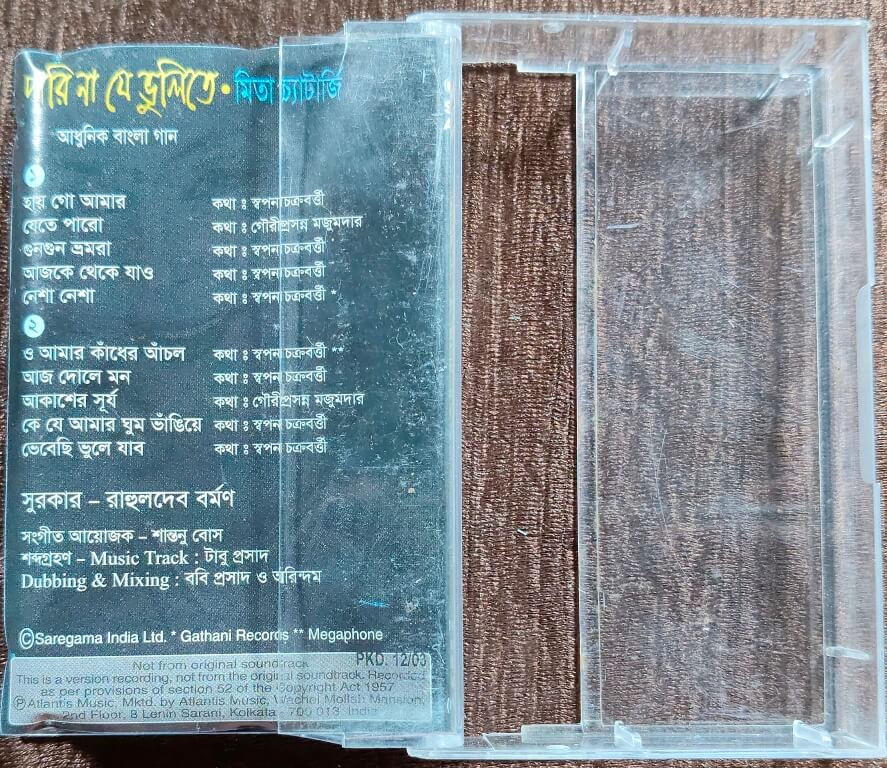 পারি না যে ভুলিতে • মিতা চ্যাটার্জি
আধুনিক বাংলা গান
১
হায় গো আমার কথা ঃ স্বপন চক্রবর্ত্তী
যেতে পারো কথা ঃ গৌরীপ্রসন্ন মজুমদার
গুনগুন ভ্রমরা কথা ঃ স্বপন চক্রবর্ত্তী
আজকে থেকে যাও কথা ঃ স্বপন চক্রবর্ত্তী
নেশা নেশা কথা ঃ স্বপন চক্রবর্ত্তী *
২
ও আমার কাঁধের আঁচল কথা ঃ স্বপন চক্রবর্ত্তী **
আজ দোলে মন কথা ঃ স্বপন চক্রবর্ত্তী
আকাশের সূর্য কথা ঃ গৌরীপ্রসন্ন মজুমদার
কে যে আমার ঘুম ভাঁঙিয়ে কথা ঃ স্বপন চক্রবর্ত্তী
ভেবেছি ভুলে যাব কথা ঃ স্বপন চক্রবর্ত্তী
সুরকার – রাহুলদেব বর্মণ
সংগীত আয়োজক – শান্তনু বোস
শব্দগ্রহণ – Music Track : টাবু প্রসাদ
Dubbing & Mixing : ববি প্রসাদ ও অরিন্দম
©Saregama India Ltd. * Gathani Records ** Megaphone
Not from original soundtrack PKD. 12/03
This is a version recording, not from the original soundtrack. Recorded
as per provisions of section 52 of the Copyright Act 1957
℗Atlantis Music. Mktd. by Atlantis Music, Wachel Mollah Mansion,
2nd Floor, 8 Lenin Sarani, Kolkata - 700 013. India